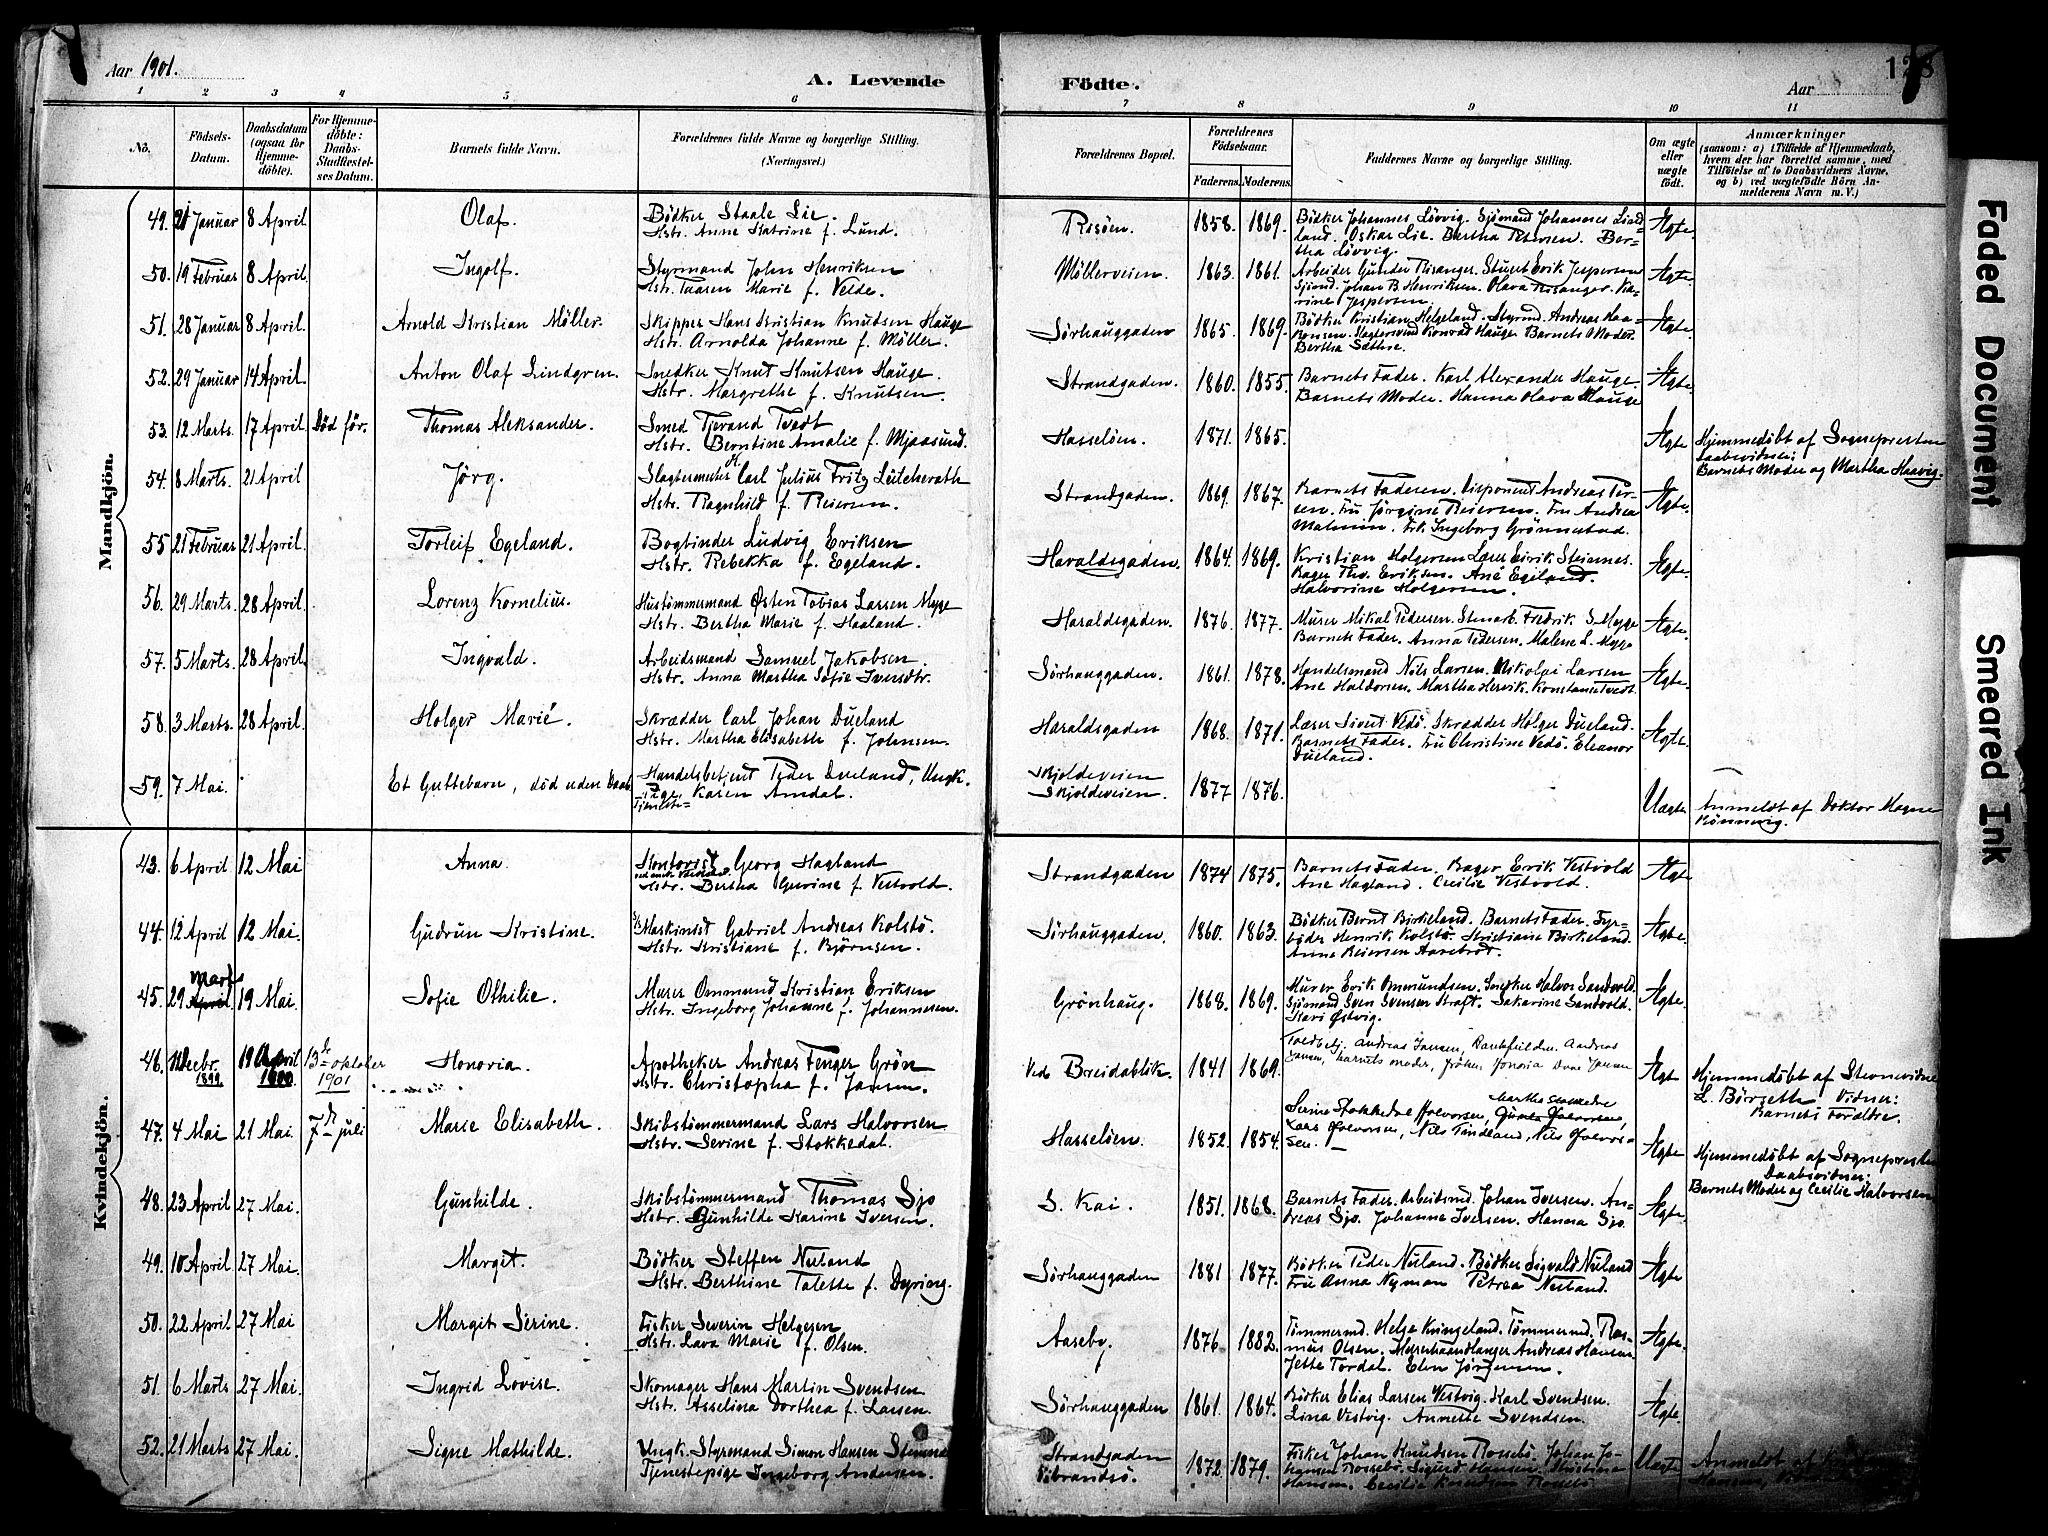 Aar 1901.
A. Levende Födte.
Aar
128
1 2 3 4 5 6 7 8 9 10 11
No.
Födsels-Datum.
Daabsdatum (ogsaa for Hjemmedöbte).
For Hjemmedöbte: Daabs-Stadfæstelses Datum.
Barnets fulde Navn.
Forældrenes fulde Navne og borgerlige Stilling.
(Næringsvei.)
Forældrenes Bopæl.
Forældrenes Födselsaar.
Faderens. Moderens.
Faddernes Navne og borgerlige Stilling.
Om ægte eller uægte födt.
Anmærkninger
(saasom: a) i Tilfælde af Hjemmedaab,
hvem der har forrettet samme, med
Tilföielse af to Daabsvidners Navne,
og b) ved uægtefödte Börn Anmelderens Navn m. V.)
Mandkjön.
49. 21 Januar 8 April Olaf. Bödker Staale Lie. Risöen. 1858. 1869. Bödker Johannes Lövvig. Sjömand Johannes Lind= Ægte.
Hstr. Anne Katrine f. Lund. land. Oskar Lie. Bertha Petersen. Ber=
tha Lövvig.
50. 19 Februar 8 April Ingolf. Styrmand John Henriksen Möllerveien. 1863. 1861. Arbeider Gunder Risanger. Stuert Erik Jespersen Ægte.
Hstr. Taaren Marie f. Velde. Sjömd. Johan B Henriksen. Olava Risanger. Ka-
rine Jespersen.
51. 28 Januar 8 April. Arnold Kristian Möller. Skipper Hans Kristian Knudsen Hauge Sörhauggaden 1865. 1869. Bödker Kristian Helgeland. Styrmd. Andreas Haa= Ægte.
Hstr. Arnolda Johanne f. Möller. Konrad Hauge Barnets Moder.
Bertha Sæthre.
52. 29 Januar 14 April. Anton Olaf Lindgren. Snedker Knut Knutsen Hauge. Strandgaden. 1860. 1855. Barnets Fader. Karl Alexander Hauge. Ægte.
Hstr. Margrethe f. Knutsen. Barnets Moder. Hanna Olava Hauge
53. 12 Marts. 17 April Död för. Thomas Aleksander. Smed Tjerand Tvedt Hasselöen. 1871. 1865. Ægte Hjemmedöbt af Sognepresten
Hstr. Berntine Amalie f. Mjaasund. Daabsvidner:
Barnets Moder og Martha Haavig.
54. 8 Marts. 21 April Jörg. Slagtermester Carl Julius Fritz Leutcherath Strandgaden. 1869. 1867. Barnets Faderen. Disponent Andreas Per- Ægte.
Hstr. Ragnhild f. Reiersen. sen. Fru Jörgine Reiersen. Fru Andrea
Malmin. Frk. Ingeborg Grönnestad.
55 21 Februar 21 April. Torleif Egeland. Bogbinder Ludvig Eriksen Haraldsgaden. 1864. 1869. Kristian Holgersen Lærer Eirik Steinnes. Ægte.
Hstr. Rebekka f. Egeland. Bager Ths. Eriksen. Ane Egeland.
Halvorine Holgersen.
56. 29 Marts. 28 April. Lorenz Kornelius. Hustömmermand Østen Tobias Larsen Mygge Haraldsgaden. 1876. 1877. Murer Mikal Pedersen. Stenarb. Fredrik S. Mygge Ægte.
Hstr. Bertha Marie f. Haaland. Barnets Fader. Anna Pedersen. Malene L. Mygge
57. 5 Marts. 28 April. Ingvald. Arbeidsmand Samuel Jakobsen. Sörhauggaden. 1861. 1878. Handelsmand Nils Larsen. Nikolai Larsen Ægte.
Hstr. Anna Martha Sofie Iversdtr. Ane Haldorsen. Martha Hervik. Konstanse Tvedt
58. 3 Marts. 28 April. Holger Marié. Skrædder Carl Johan Dueland Haraldsgaden 1868. 1871. Læser Sivert Vedö. Skrædder Holger Dueland. Ægte.
Hstr. Martha Elisabeth f. Johnsen. Barnets Fader. Fru Christine Vedö. Eleanor
Dueland.
59. 7 Mai. Et Guttebarn, död uden Daab Handelsbetjent Peder Dueland, Ungk. Skjoldeveien 1877 1876. Uægte Anmeldt af Doktor Magne
Tjeneste= Pge. Karen Amdal. Skjoldeveien. Rönnevig.
Kvindekjön.
43. 6 April 12 Mai Anna. Kontorist Georg Hagland Strandgaden 1874 1875. Barnets Fader. Bager Erik Vestvold Ægte
Hstr. Bertha Gurine f. Vestvold. Ane Hagland. Cecilie Vestvold.
44. 12 April 12 Mai. Gudrun Kristine. Maskinist Gabriel Andreas Kolstö. Sörhauggaden. 1860. 1863. Bödker Bernt Birkeland. Barnets Fader. Fyr- Ægte.
Hstr. Kristiane f. Björnsen. böder Henrik Kolstö. Kristiane Birkeland.
Anne Reiersen Aarebrot.
45. 29 April Marts 19 Mai. Sofie Othilie. Murer Ommund Kristian Eriksen Grönhaug. 1868. 1869. Murer Erik Ommundsen. Snedker Halvor Sandvold. Ægte.
Hstr. Ingeborg Johanne f. Johannesen. Sjömand Sven Svensen Kraft. Sakarine Sandvold.
Kari Østvig.
46. Decbr. 1899 19 April 1900 13de oktober 1901 Honoria. Apotheker Andreas Fenger Grön Ved Breidablik. 1841 1869. Toldbetj. Andreas Jansen, Andreas Ægt Hjemmedöbt af Stvnevidne
Hstr. Christopha f. Jansen. Jansen, barnets moder, fröken Honoria Jansen L. Börseth Vidner:
Barnets Forældre.
47. 4 Mai 21 Mai. 7de juli Marie Elisabeth. Skibstömmermand Lars Halvorsen Hasselöen. 1852. 1854. Serine Stokkedal Halvorsen, Martha Stokkedal Ægte Hjemmedöbt af Sognepresten
Hstr. Serine f. Stokkedal. Lars Halvorsen, Nils Tindeland, Nils Halvor= Daabsvidner:
sen. Barnets Moder og Cecilie Halvorsen
48. 23 April 27 Mai. Gunhilde. Skibstömmermand Thomas Sjo S. Kai. 1851. 1868. Barnets Fader. Arbeidsmd. Johan Iversen. An- Ægte.
Hstr. Gunhilde Karine Iversen. dreas Sjo. Johanne Iversen. Hanna Sjo.
49. 10 April 27 Mai. Margit. Bödker Steffen Neuland Sörhauggaden 1881 1877. Bödker Peder Neuland. Bödker Sigvald Neuland Ægte
Hstr. Berthine Talette f. Dyring. Fru Anna Nyman Petrea Neuland.
50. 22 April 27 Mai Margit Serine. Fisker Severin Helgesen Aaseby. 1876. 1882. Tömmermd. Helge Kringeland. Tömmermd. Ras- Ægte.
Hstr. Lava Marie f. Olsen. mus Olsen. Andreas Hansen.
Jette Tordal. Elen Jörgensen.
51. 6 Marts 27 Mai. Ingrid Lovise. Skomager Hans Martin Svendsen Sörhauggaden 1861. 1864. Bödker Elias Larsen Vestvig. Karl Svendsen. Ægte.
Hstr. Asselina Dorthea f. Larsen. Lina Vestvig. Annette Svendsen.
52. 21 Marts 27 Mai. Signe Mathilde. Ungk. Styrmand Simon Hansen Strandgaden 1872 1879. Fisker Johan Knudsen Rossebö. Johan Jo- Uægte Anmeldt af
Tjenestepige Ingeborg Andersen. Vibrandsö. hansen Rossebö. Sigurd Hansen. Kristine
Hansen. Cecilie Knudsen Rossebö.
Faded Document
Smeared Ink